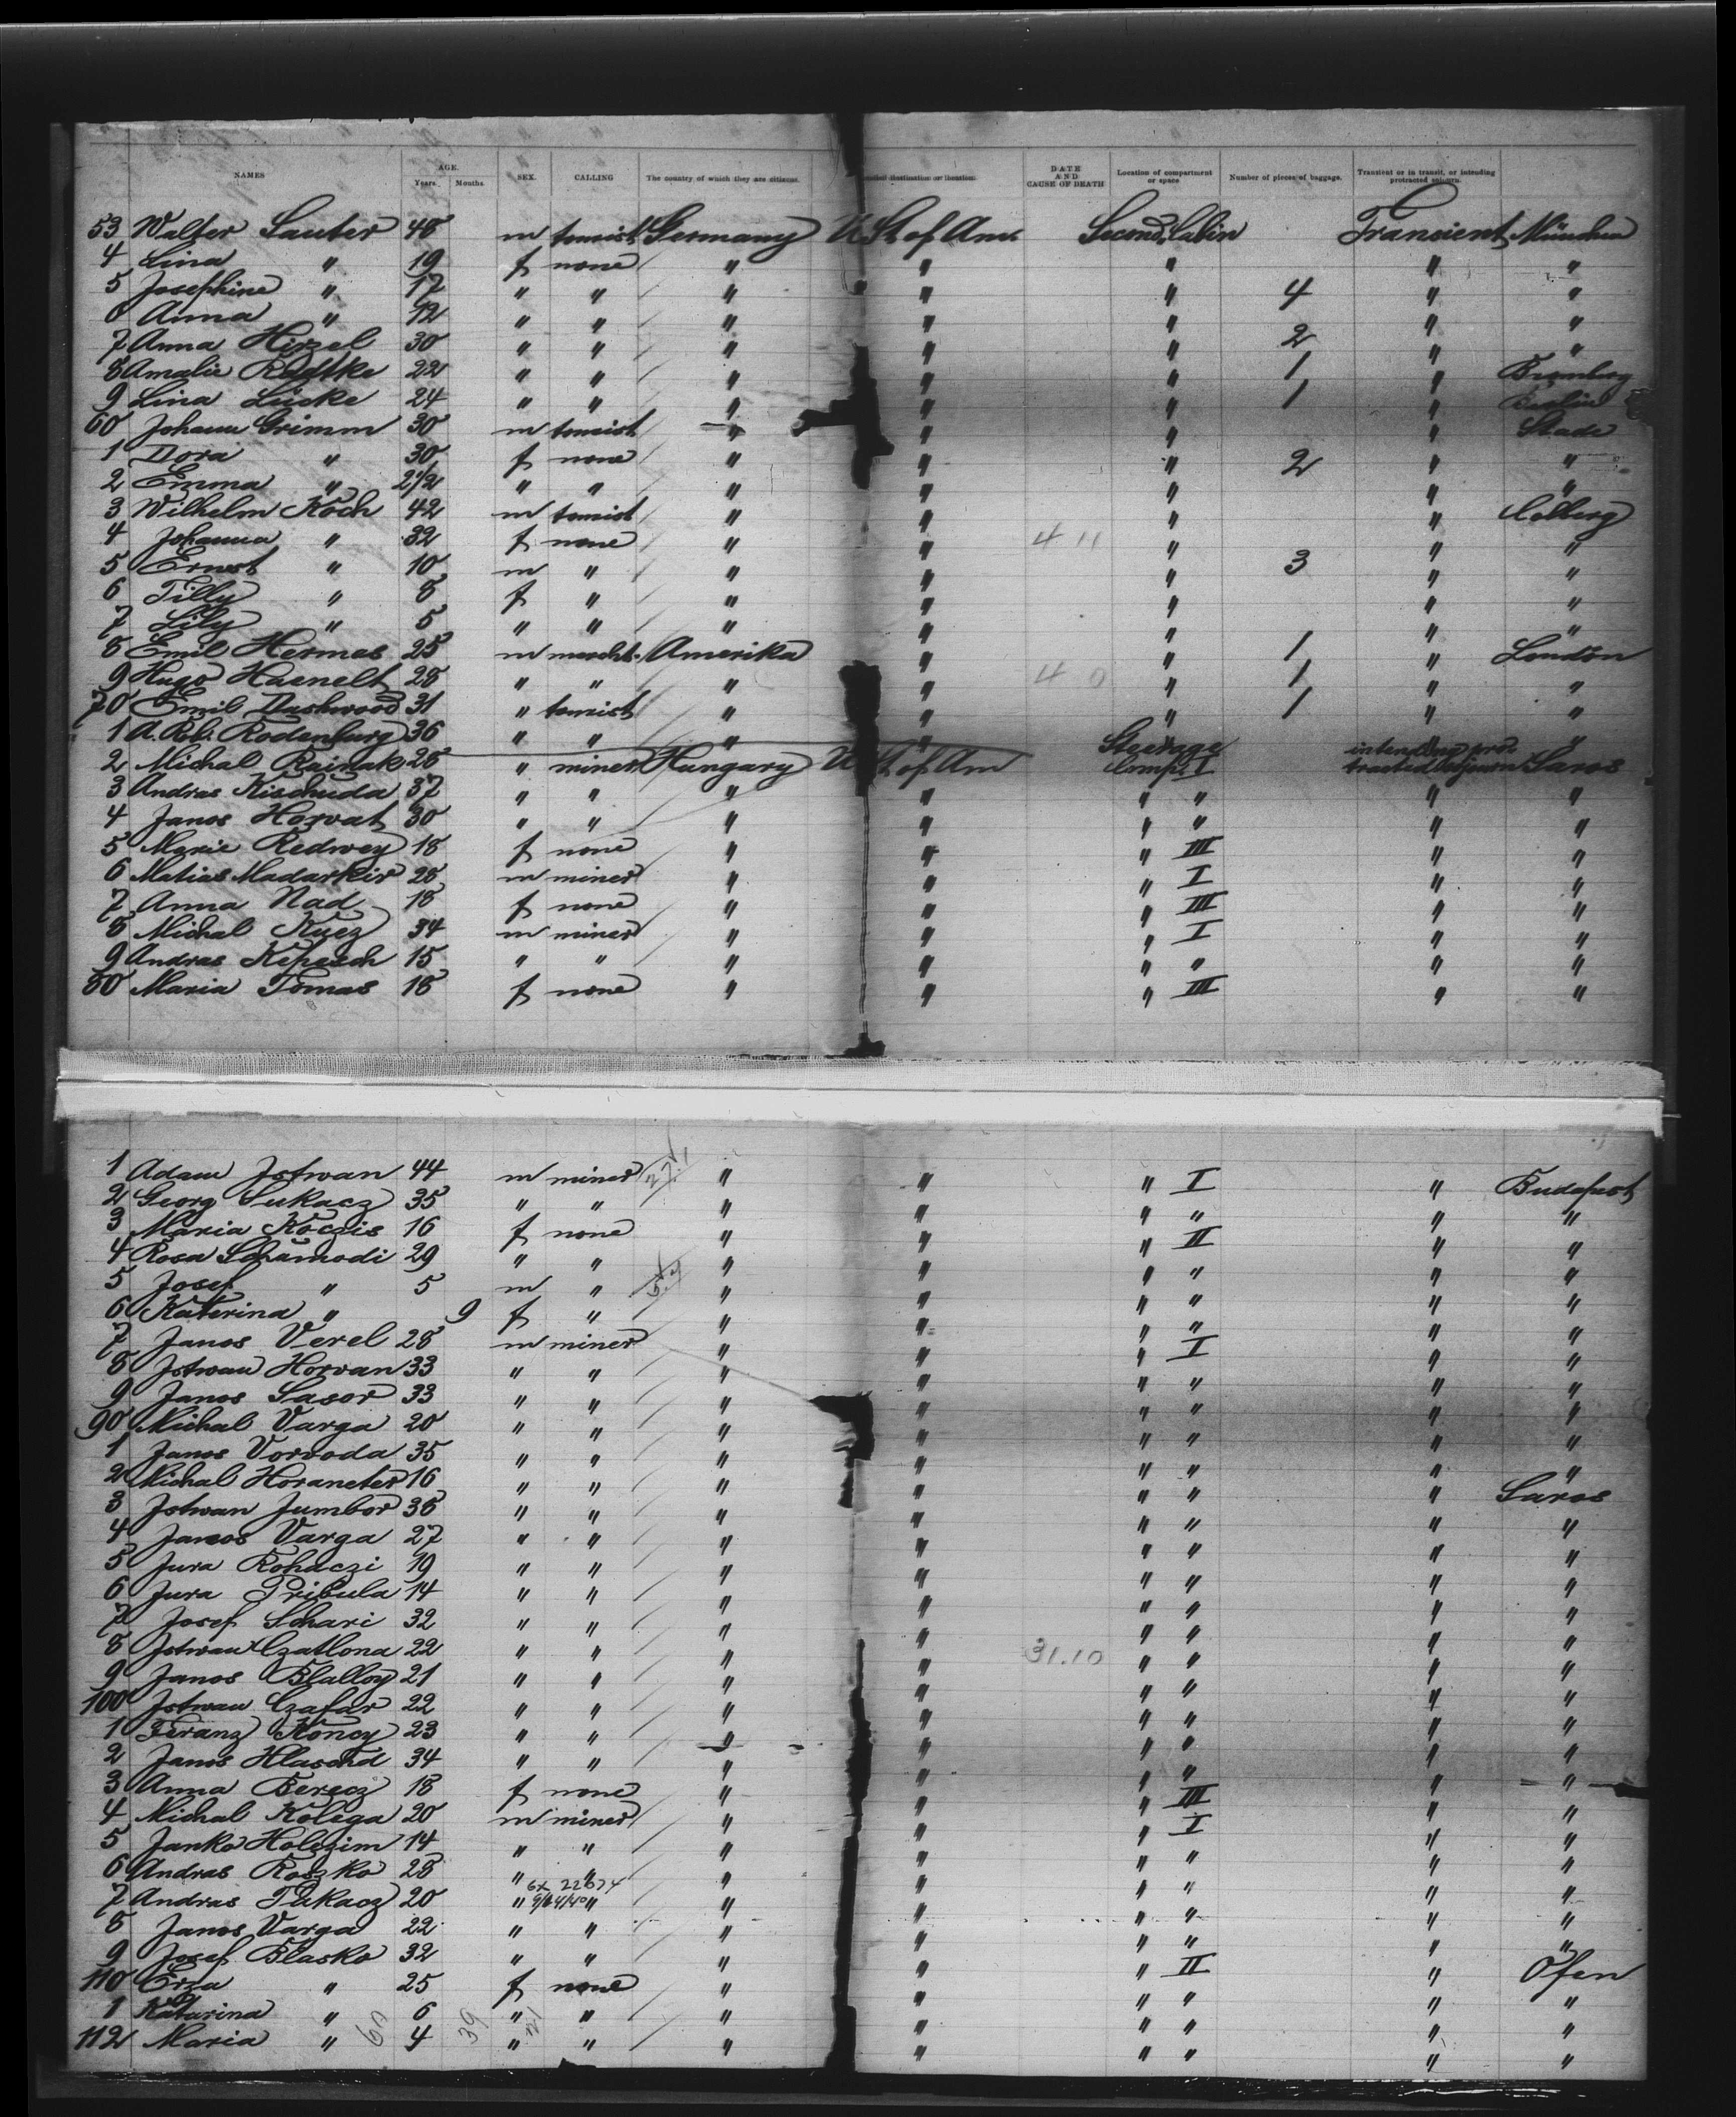 NAMES AGE. Years. Months. SEX. CALLING The country of which they are citizens. destination or location. DATE AND CAUSE OF DEATH Location of compartment or space. Number of pieces of baggage. Transient or in transit, or intending protracted sojourn.
53 Walter Sauter 48 m tourist Germany U. St. of Am. Second Cabin Transient München
4 Lina " 19 f none " " " " "
5 Josephine " 17 " " " " " 4 " "
6 Anna " 12 " " " " " " "
7 Anna Hirzel 30 " " " " " 2 " "
8 Amalie Radtke 22 " " " " " 1 " Bromberg
9 Lina Lücke 24 " " " " " 1 " Berlin
60 Johann Grimm 30 m tourist " " " " Stade
1 Dora " 30 f none " " " 2 " "
2 Emma " 2 1/2 " " " " " " "
3 Wilhelm Koch 42 m tourist " " " " Colberg
4 Johanna " 32 f none " " 4 11 " " "
5 Ernest " 10 m " " " " 3 " "
6 Tilly " 8 f " " " " " "
7 Lily " 5 " " " " " " "
8 Emil Hermes 25 m mercht. Amerika " " 1 " London
9 Hugo Haenelt 28 " " " " 4 0 " 1 " "
70 Emil Dashwood 31 " tourist " " " 1 " "
1 A. Rob. Rodenburg 36 " " " " " " "
2 Michal Rainak 28 " miner Hungary U St of Am Steerage Comp. I intending protracted sojourn Saros
3 Andras Kischuda 37 " " " " " " " "
4 Janos Horvat 30 " " " " " " " "
5 Marie Redwey 18 f none " " " III " "
6 Matias Madarkir 28 m miner " " " I " "
7 Anna Nad 18 f none " " " III " "
8 Michal Kucz 34 m miner " " " I " "
9 Andras Kepesch 15 " " " " " " " "
80 Maria Tomas 18 f none " " " III " "
1 Adam Jstwan 44 m miner " " " I " Budapest
2 Georg Lukacz 35 " " " " " " " "
3 Maria Koczis 16 f none " " " II " "
4 Rosa Schamodi 29 " " " " " " " "
5 Josef " 5 m " " " " " " "
6 Katerina " 9 f " " " " " " "
7 Janos Verel 28 m miner " " " I " "
8 Jstwan Horvan 33 " " " " " " " "
9 Janos Sasor 33 " " " " " " " "
90 Michal Varga 20 " " " " " " " "
1 Janos Vorvoda 35 " " " " " " " "
2 Michal Horaneter 16 " " " " " " " Saros
3 Jstwan Jumbor 38 " " " " " " " "
4 Janos Varga 27 " " " " " " " "
5 Jura Rohaczi 19 " " " " " " " "
6 Jura Pribula 14 " " " " " " " "
7 Josef Schari 32 " " " " " " " "
8 Jstwan Czatlona 22 " " " " 31.10 " " " "
9 Janos Blalloy 21 " " " " " " " "
100 Jstwan Czafar 22 " " " " " " " "
1 Feranz Koncy 23 " " " " " " " "
2 Janos Hlaschd 34 " " " " " " " "
3 Anna Berecz 18 f none " " " III " "
4 Michal Kolega 20 m miner " " " I " "
5 Janko Holezim 14 " " " " " " " "
6 Andras Roszko 28 " " " " " " " "
7 Andras Tukacz 20 " " " " " " " "
8 Janos Varga 22 " " " " " " " "
9 Josef Blasko 32 " " " " " II " Ofen
110 Erza " 25 f none " " " " " "
1 Katarina " 6 " " " " " " " "
112 Maria " 4 " " " " " " " "